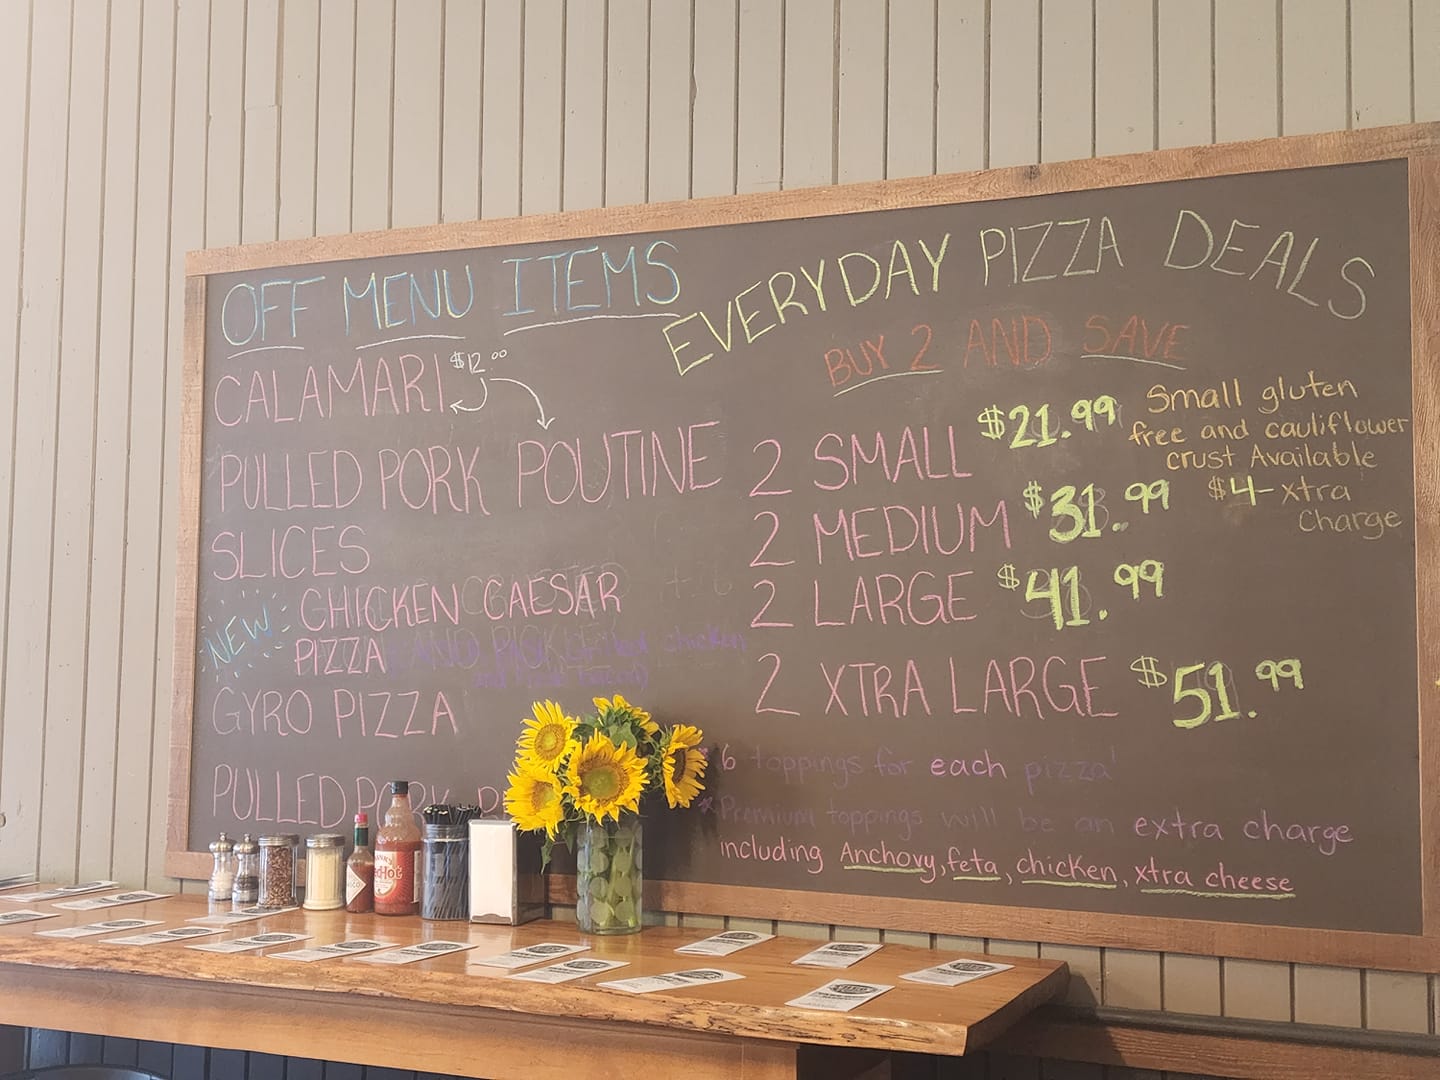 OFF MENU ITEMS
CALAMARI $12.00
PULLED PORK POUTINE
SLICES
NEW CHICKEN CAESAR
PIZZA
GYRO PIZZA
PULLED PORK
EVERYDAY PIZZA DEALS
BUY 2 AND SAVE
2 SMALL $21.99
2 MEDIUM $31.99
2 LARGE $41.99
2 XTRA LARGE $51.99
Small gluten
free and cauliflower
crust Available
$4- xtra
Charge
6 toppings for each pizza
*Premium toppings will be an extra charge
including Anchovy, feta, chicken, xtra cheese